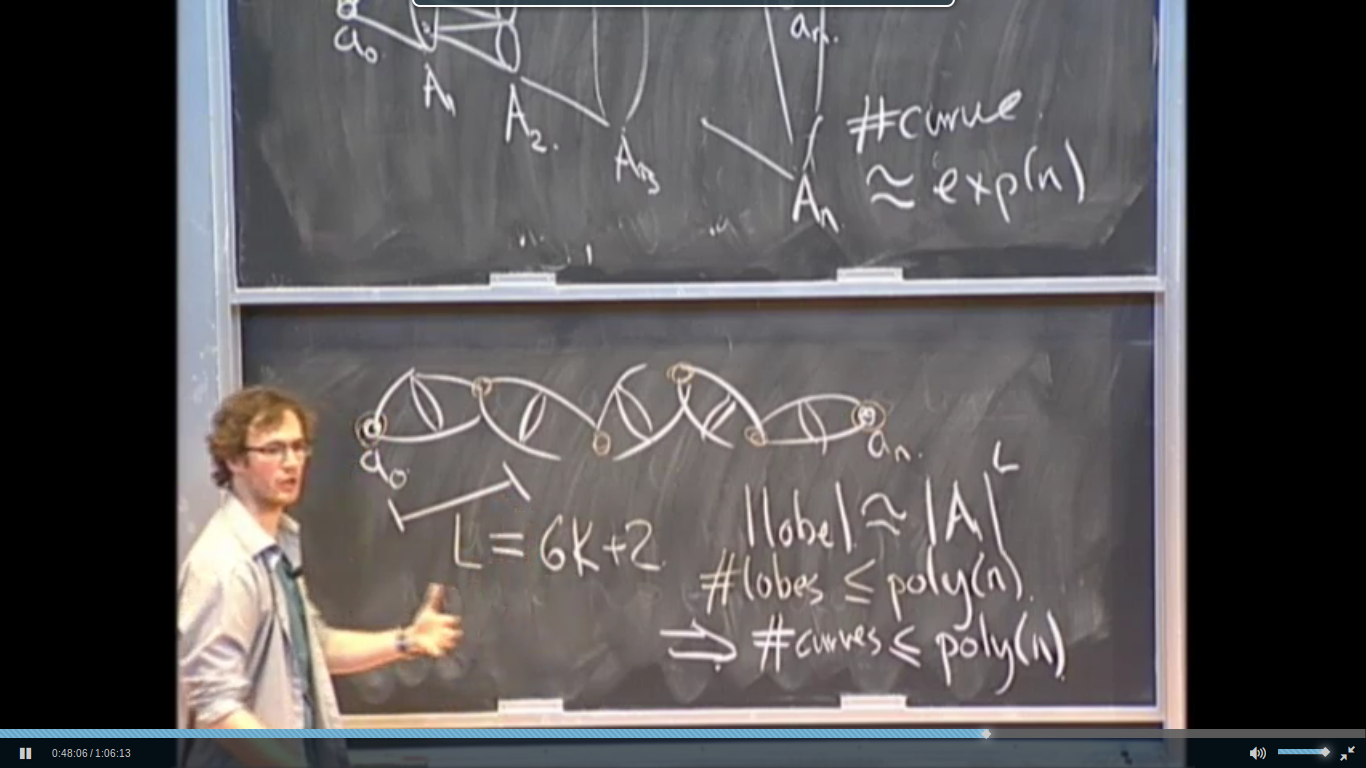 a₀
A₁
A₂.
A₃
aₙ.
Aₙ
#curve
≈ exp(n)
a₀
aₙ.
L = 6K+2
|lobe| ≈ |A₁|ᴸ
#lobes ≤ poly(n).
⇒ #curves ≤ poly(n).
0:48:06/1:06:13